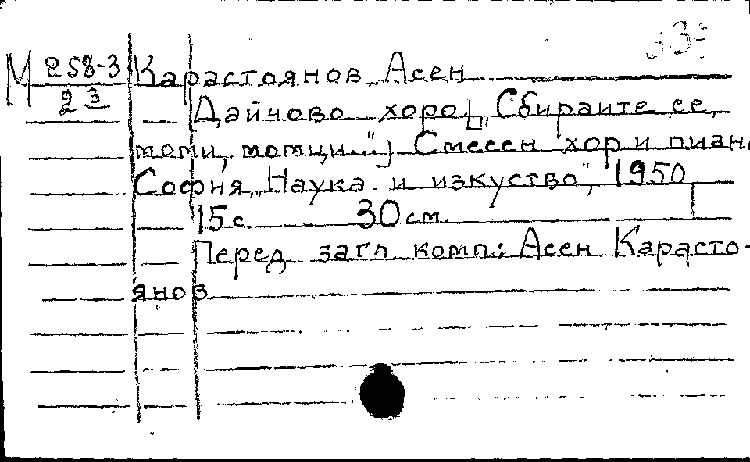 33
М 258-3 Карастоянов, Асен
23 Дайчово хоро [„Сбирайте се,
моми, момци..."] Смесен хор и пиан
София, „Наука и изкуство", 1950
15 с. 30 см.
Перед загл. комп.: Асен Карасто-
янов